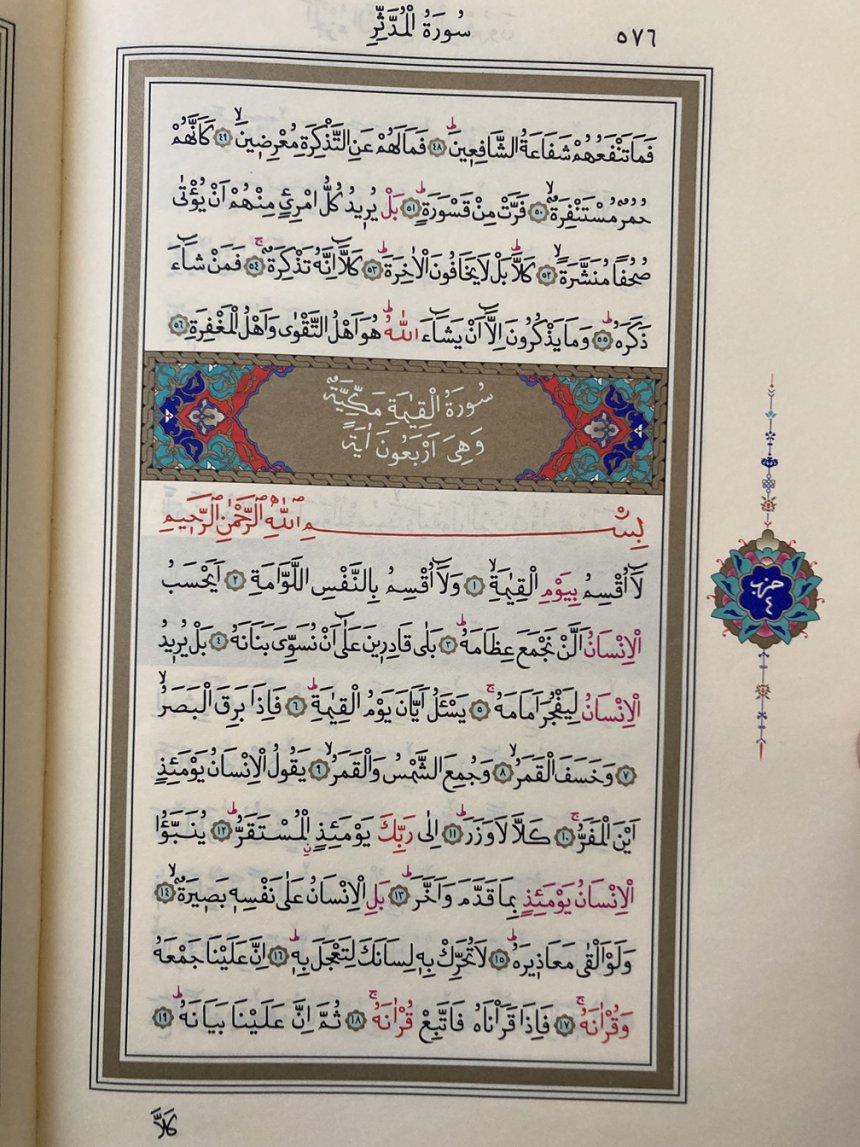 سُورَةُ الْمُدَّثِّرِ
٥٧٦
فَمَا تَنْفَعُهُمْ شَفَاعَةُ الشَّافِعِينَۜ ﴿٤٨﴾ فَمَا لَهُمْ عَنِ التَّذْكِرَةِ مُعْرِضِينَۙ ﴿٤٩﴾ كَاَنَّهُمْ
حُمُرٌ مُسْتَنْفِرَةٌۙ ﴿٥٠﴾ فَرَّتْ مِنْ قَسْوَرَةٍۜ ﴿٥١﴾ بَلْ يُرٖيدُ كُلُّ امْرِئٍ مِنْهُمْ اَنْ يُؤْتٰى
صُحُفاً مُنَشَّرَةًۙ ﴿٥٢﴾ كَلَّاۜ بَلْ لَا يَخَافُونَ الْاٰخِرَةَۜ ﴿٥٣﴾ كَلَّٓا اِنَّهُ تَذْكِرَةٌۚ ﴿٥٤﴾ فَمَنْ شَٓاءَ
ذَكَرَهُۜ ﴿٥٥﴾ وَمَا يَذْكُرُونَ اِلَّٓا اَنْ يَشَٓاءَ اللّٰهُۜ هُوَ اَهْلُ التَّقْوٰى وَاَهْلُ الْمَغْفِرَةِ ﴿٥٦﴾
سُورَةُ الْقِيٰمَةِ مَكِّيَّةٌ
وَهِىَ اَرْبَعُونَ اٰيَةً
بِسْمِ اللّٰهِ الرَّحْمٰنِ الرَّحٖيمِ
لَٓا اُقْسِمُ بِيَوْمِ الْقِيٰمَةِۙ ﴿١﴾ وَلَٓا اُقْسِمُ بِالنَّفْسِ اللَّوَّامَةِ ﴿٢﴾ اَيَحْسَبُ
الْاِنْسَانُ اَلَّنْ نَجْمَعَ عِظَامَهُۜ ﴿٣﴾ بَلٰى قَادِرٖينَ عَلٰٓى اَنْ نُسَوِّىَ بَنَانَهُ ﴿٤﴾ بَلْ يُرٖيدُ
الْاِنْسَانُ لِيَفْجُرَ اَمَامَهُۚ ﴿٥﴾ يَسْـَٔلُ اَيَّانَ يَوْمُ الْقِيٰمَةِۜ ﴿٦﴾ فَاِذَا بَرِقَ الْبَصَرُۙ
﴿٧﴾ وَخَسَفَ الْقَمَرُۙ ﴿٨﴾ وَجُمِعَ الشَّمْسُ وَالْقَمَرُۙ ﴿٩﴾ يَقُولُ الْاِنْسَانُ يَوْمَئِذٍ
اَيْنَ الْمَفَرُّۚ ﴿١٠﴾ كَلَّا لَا وَزَرَۜ ﴿١١﴾ اِلٰى رَبِّكَ يَوْمَئِذٍ الْمُسْتَقَرُّۜ ﴿١٢﴾ يُنَبَّؤُا
الْاِنْسَانُ يَوْمَئِذٍ بِمَا قَدَّمَ وَاَخَّرَۜ ﴿١٣﴾ بَلِ الْاِنْسَانُ عَلٰى نَفْسِهٖ بَصٖيرَةٌۙ ﴿١٤﴾
وَلَوْ اَلْقٰى مَعَاذٖيرَهُۜ ﴿١٥﴾ لَا تُحَرِّكْ بِهٖ لِسَانَكَ لِتَعْجَلَ بِهٖۜ ﴿١٦﴾ اِنَّ عَلَيْنَا جَمْعَهُ
وَقُرْاٰنَهُۚ ﴿١٧﴾ فَاِذَا قَرَأْنَاهُ فَاتَّبِعْ قُرْاٰنَهُۚ ﴿١٨﴾ ثُمَّ اِنَّ عَلَيْنَا بَيَانَهُۜ ﴿١٩﴾
حزب
٤
كَلَّا